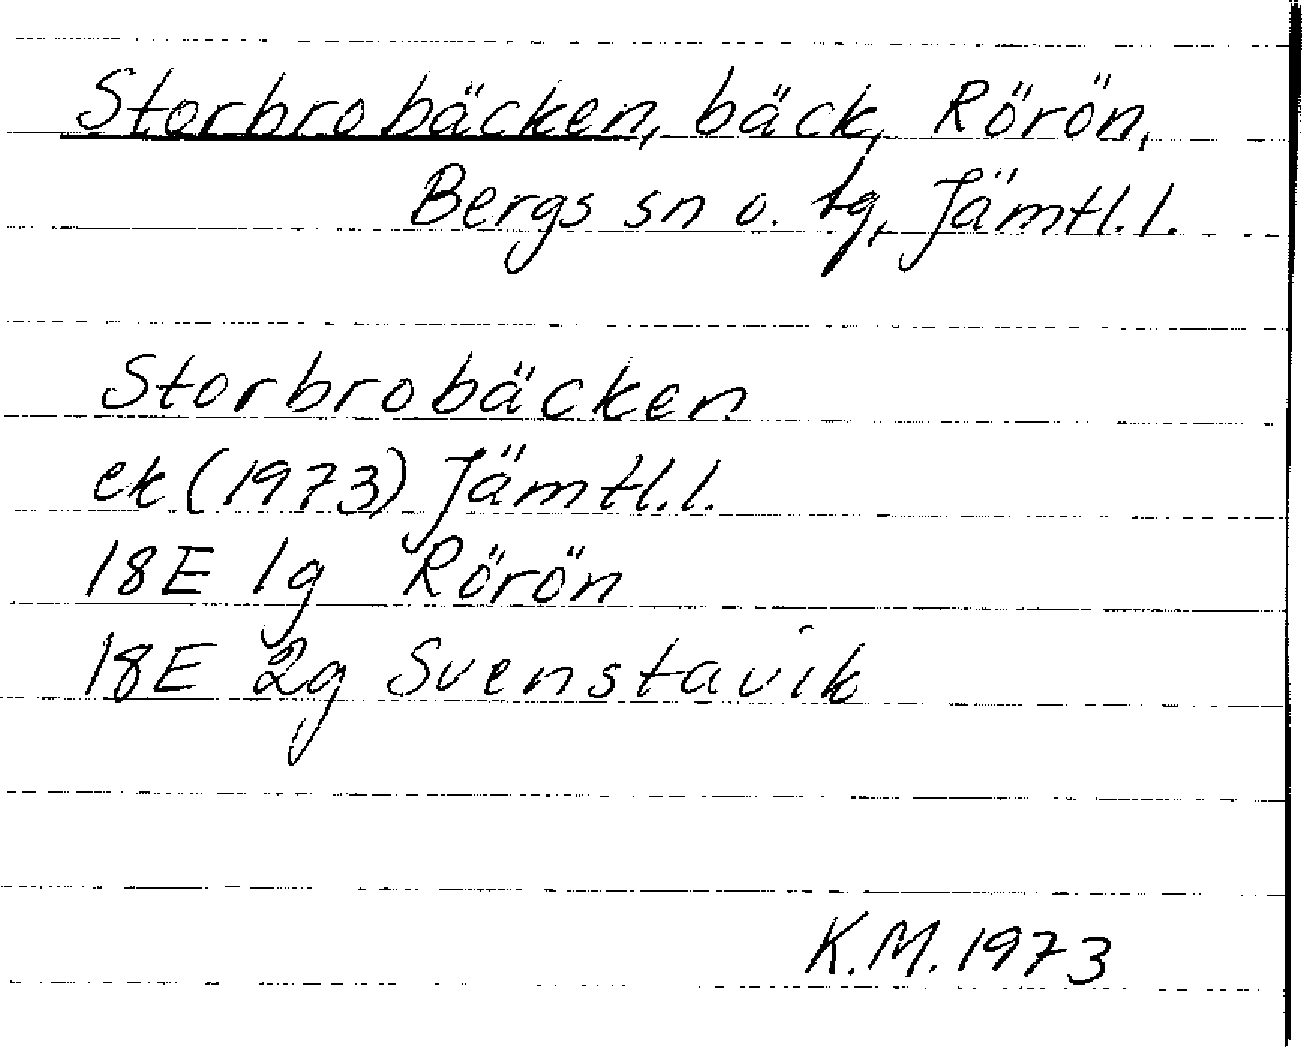 Storbrobäcken, bäck, Rörön,
Bergs sn o. tg, Jämtl.l.
Storbrobäcken
ek (1973) Jämtl.l.
18E 1g Rörön
18E 2g Svenstavik
K.M. 1973